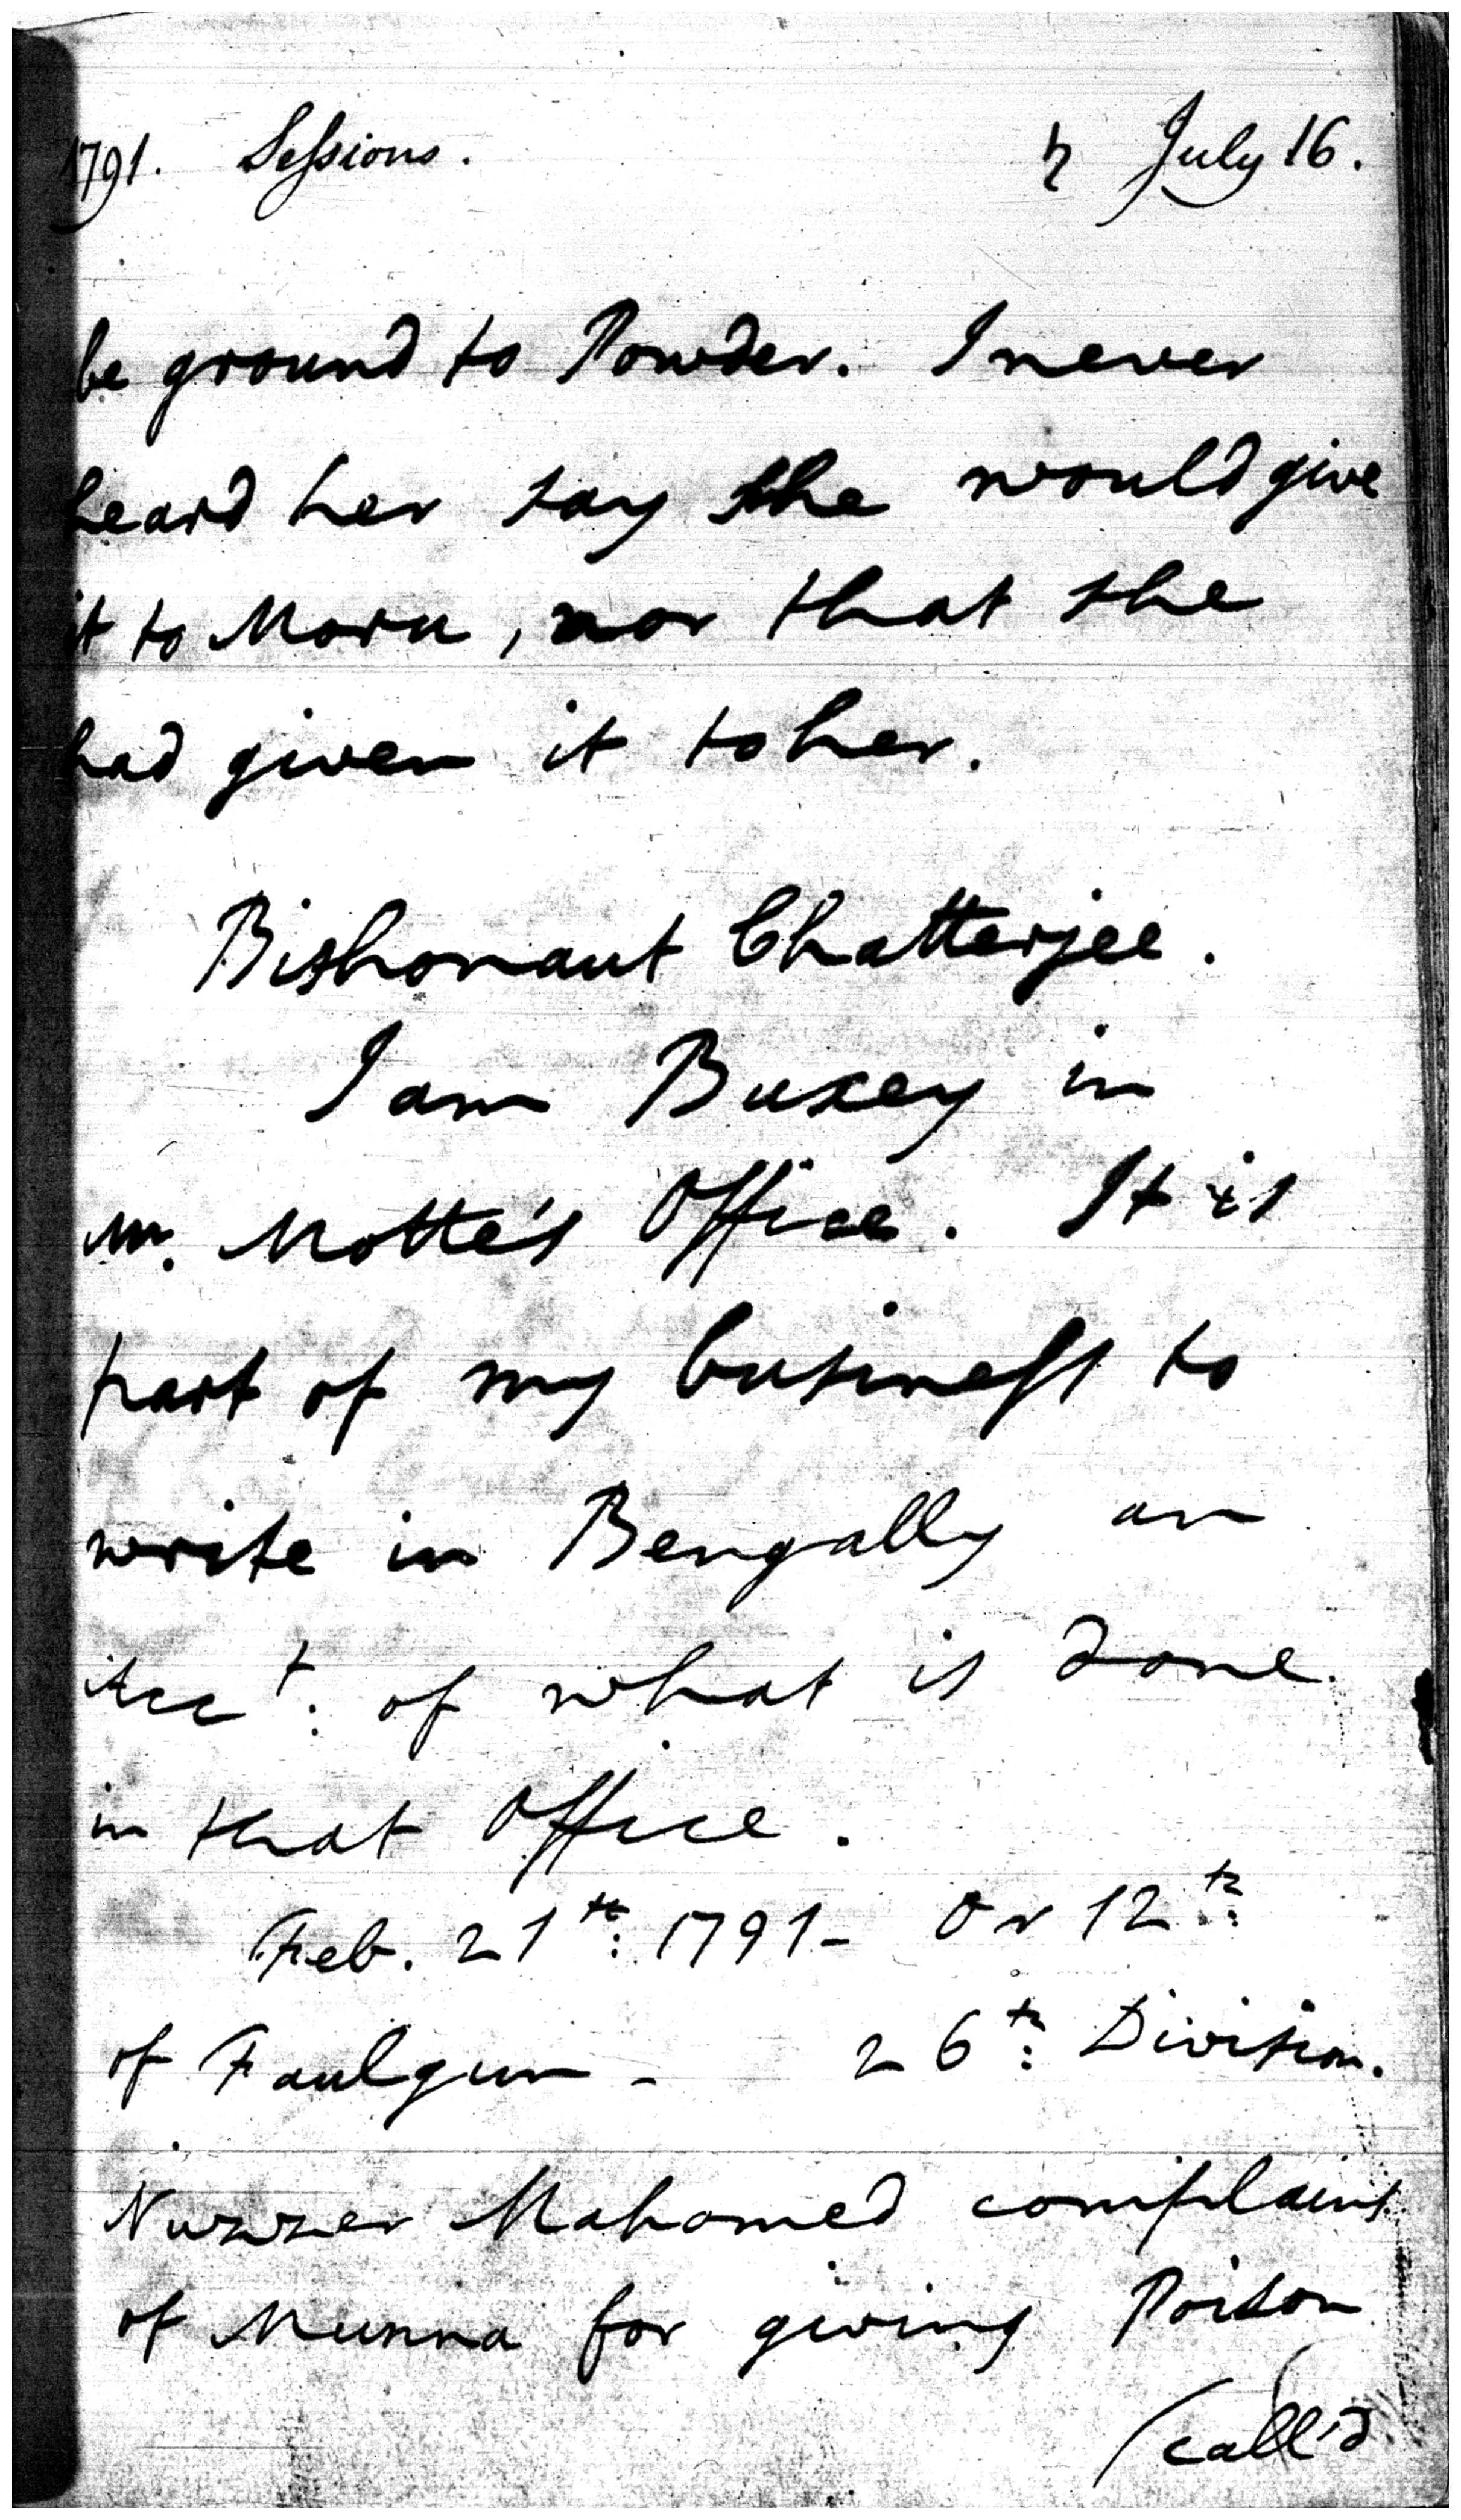 1791. Sessions. ♄ July 16.
be ground to Powder. I never
heard her say she would give
it to Moru, nor that she
had given it to her.
Bishonaut Chatterjee.
I am Buxey in
Mr. Motte's Office. It is
part of my business to
write in Bengally an
Acct: of what is done
in that Office.
Feb. 21th: 1791 - Or 12th:
of Faulgun - 26th: Division.
Nuzzer Mahomed complains
of Munna for giving Poison
(call'd